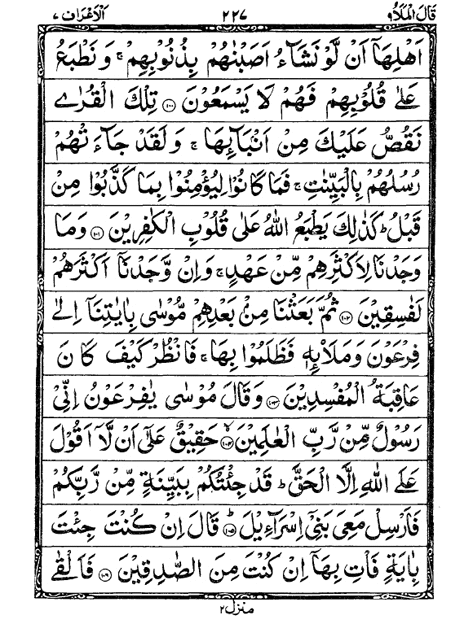 قَالَ الْمَلَاُ ٩ ٢٢٧ اَلْاَعْرَاف ٧
اَهْلِهَاۤ اَنْ لَّوْ نَشَآءُ اَصَبْنٰهُمْ بِذُنُوْبِهِمْ ۚ وَ نَطْبَعُ
عَلٰى قُلُوْبِهِمْ فَهُمْ لَا يَسْمَعُوْنَ ﴿١٠٠﴾ تِلْكَ الْقُرٰى
نَقُصُّ عَلَيْكَ مِنْ اَنْۢبَآئِهَا ۚ وَ لَقَدْ جَآءَتْهُمْ
رُسُلُهُمْ بِالْبَيِّنٰتِ ۚ فَمَا كَانُوْا لِيُؤْمِنُوْا بِمَا كَذَّبُوْا مِنْ
قَبْلُ ؕ كَذٰلِكَ يَطْبَعُ اللّٰهُ عَلٰى قُلُوْبِ الْكٰفِرِيْنَ ﴿١٠١﴾ وَمَا
وَجَدْنَا لِاَكْثَرِهِمْ مِّنْ عَهْدٍ ۚ وَاِنْ وَّجَدْنَاۤ اَكْثَرَهُمْ
لَفٰسِقِيْنَ ﴿١٠٢﴾ ثُمَّ بَعَثْنَا مِنْۢ بَعْدِهِمْ مُّوْسٰى بِاٰيٰتِنَاۤ اِلٰى
فِرْعَوْنَ وَمَلَا۠ئِهٖ فَظَلَمُوْا بِهَا ۚ فَانْظُرْ كَيْفَ كَانَ
عَاقِبَةُ الْمُفْسِدِيْنَ ﴿١٠٣﴾ وَقَالَ مُوْسٰى يٰفِرْعَوْنُ اِنِّيْ
رَسُوْلٌ مِّنْ رَّبِّ الْعٰلَمِيْنَ ﴿١٠٤﴾ حَقِيْقٌ عَلٰۤى اَنْ لَّاۤ اَقُوْلَ
عَلَى اللّٰهِ اِلَّا الْحَقَّ ؕ قَدْ جِئْتُكُمْ بِبَيِّنَةٍ مِّنْ رَّبِّكُمْ
فَاَرْسِلْ مَعِيَ بَنِيْۤ اِسْرَآءِيْلَ ﴿١٠٥﴾ قَالَ اِنْ كُنْتَ جِئْتَ
بِاٰيَةٍ فَاْتِ بِهَاۤ اِنْ كُنْتَ مِنَ الصّٰدِقِيْنَ ﴿١٠٦﴾ فَاَلْقٰى
منزل ٢